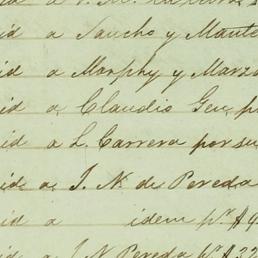 id a Sancho y Mante
id a Murphy y Marzo
id a Claudio Gen, p
id a L. Carrera por su
id a J. N. de Pereda
id a idem pr. $
id a J. N. Pereda pr. $32